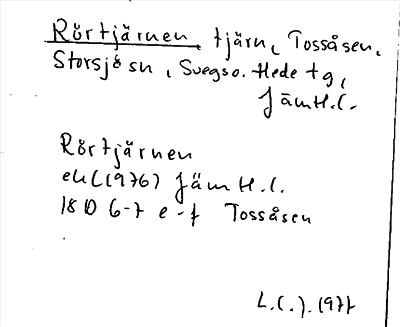 Rörtjärnen, tjärn, Tossåsen,
Storsjö sn, Svegs o. Hede tg,
Jämtl.
Rörtjärnen
ekl (1976) Jämtl.
18 D 6-7 e-f Tossåsen
1977